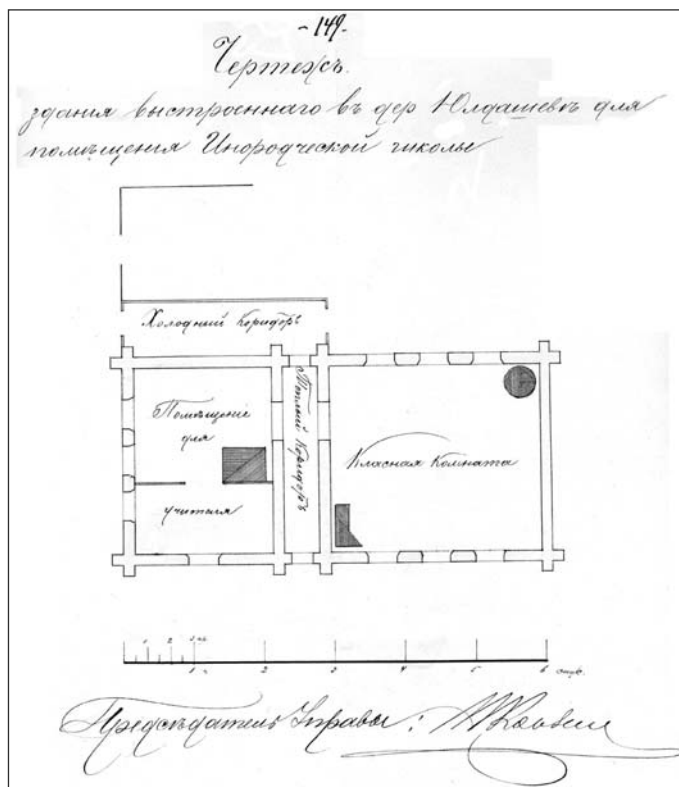 - 149.
Чертежъ
зданія выстроеннаго въ дер Юлдашевѣ для
помѣщенія Инородческой школы
Холодный Коридоръ
Помѣщеніе
для
учителя
Теплый Коридоръ
Класная Комната
1 2 3
1 2 3 4 5 6 саж.
Предсѣдатель Управы: